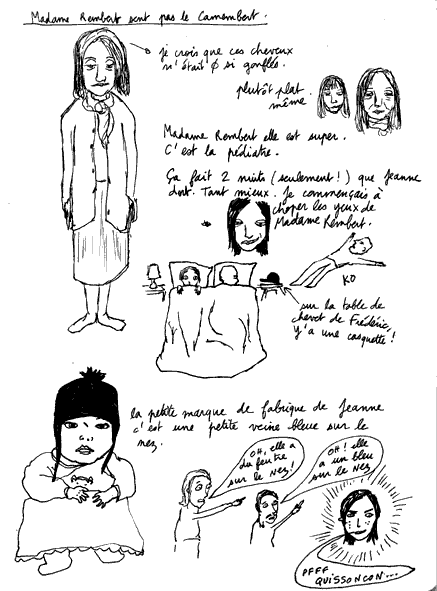 Madame Rembert sent pas le Camembert.
Je crois que ces cheveux
n'était Ø si gonflée.
plutôt plat
même.
Madame Rembert elle est super.
C'est la pédiatre.
Ça fait 2 nuits (seulement!) que Jeanne
dort. Tant mieux. Je commençais à
choper les yeux de
Madame Rembert.
KO
sur la table de
chevet de Frédéric,
y'a une casquette!
la petite marque de fabrique de Jeanne
c'est une petite veine bleue sur le
nez.
OH, elle a
du feutre
sur le NEZ!
OH! elle
a un bleu
sur le NEZ
PFFF
QUISSONCON...